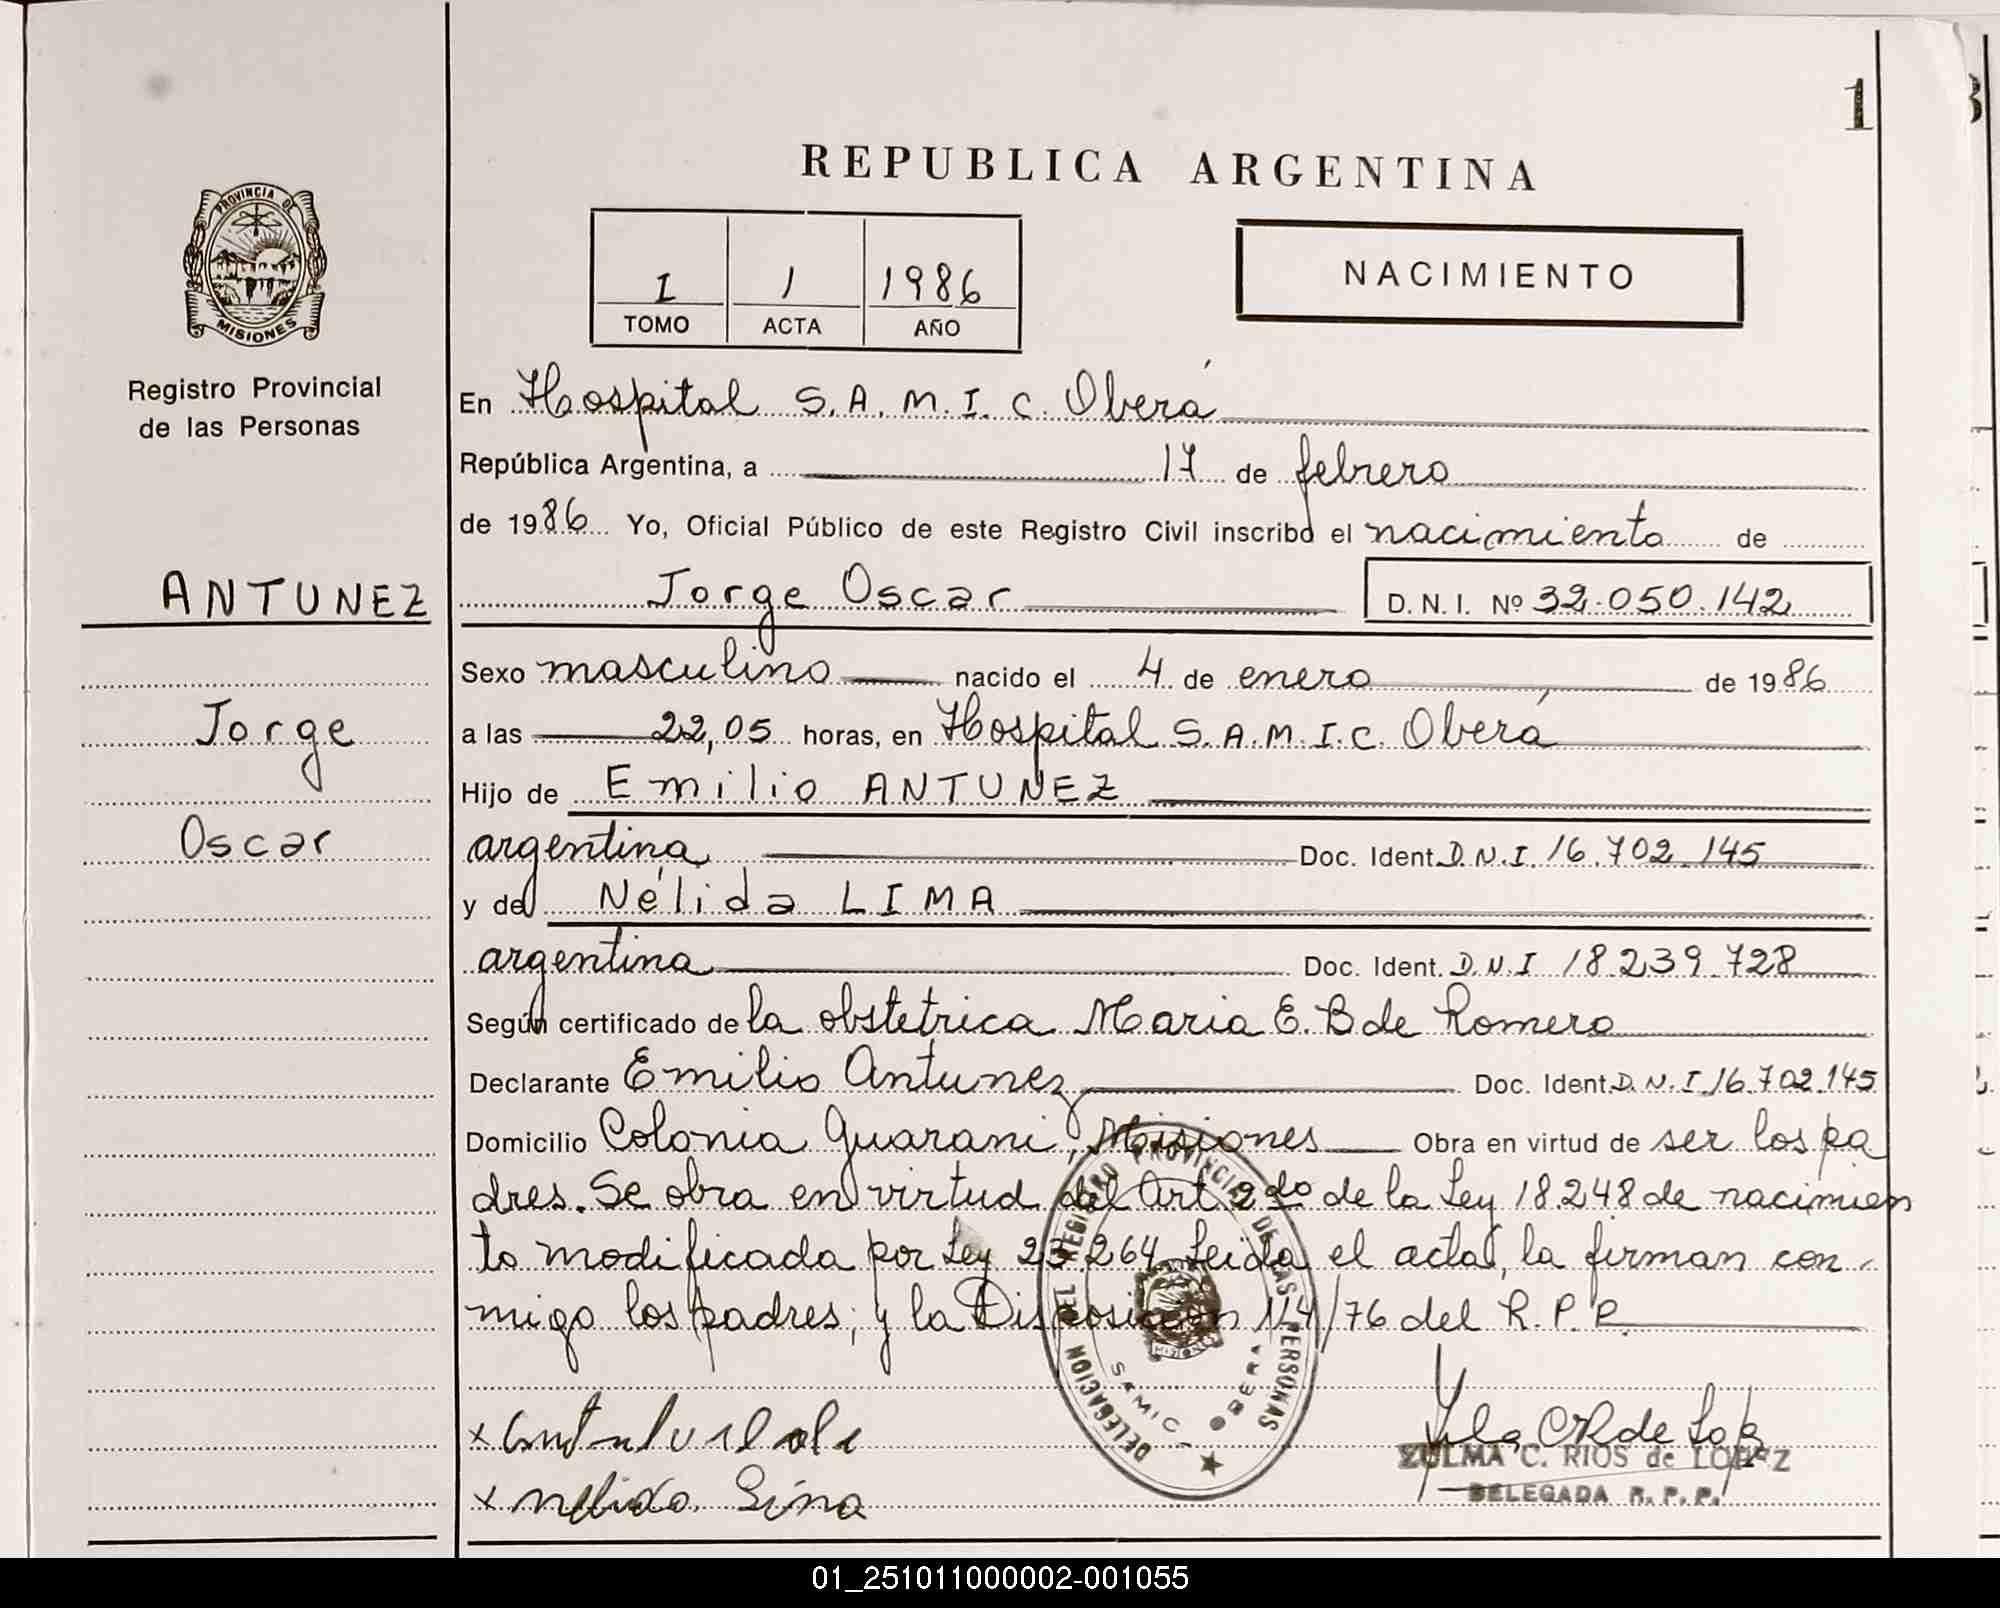 1
REPUBLICA ARGENTINA
PROVINCIA DE
MISIONES
Registro Provincial
de las Personas
I 1 1986
TOMO ACTA AÑO
NACIMIENTO
En Hospital S.A.M.I.C. Oberá
República Argentina, a 17 de febrero
de 1986 Yo, Oficial Público de este Registro Civil inscribo el nacimiento de
ANTUNEZ
Jorge Oscar D.N.I. Nº 32.050.142
Sexo masculino nacido el 4 de enero de 1986
Jorge
a las 22,05 horas, en Hospital S.A.M.I.C. Oberá
Hijo de Emilio ANTUNEZ
Oscar
argentina Doc. Ident. D.N.I. 16.702.145
y de Nélida LIMA
argentina Doc. Ident. D.N.I 18.239.728
Según certificado de la obstetrica Maria E. B de Romero
Declarante Emilio Antunez Doc. Ident. D.N.I. 16.702.145
Domicilio Colonia Guarani, Misiones Obra en virtud de ser los pa
dres. Se obra en virtud del Art. 2do de la Ley 18.248 de nacimien
to modificada por Ley 23.264 Leída el acta, la firman con-
migo los padres; y la Disposición 114/76 del R.P.P.
DELEGACION DEL REGISTRO PROVINCIAL DE LAS PERSONAS
MISIONES
SAMIC - OBERA
x nelida Lima
ZULMA C. RIOS de LOPEZ
DELEGADA R.P.P.
01_251011000002-001055